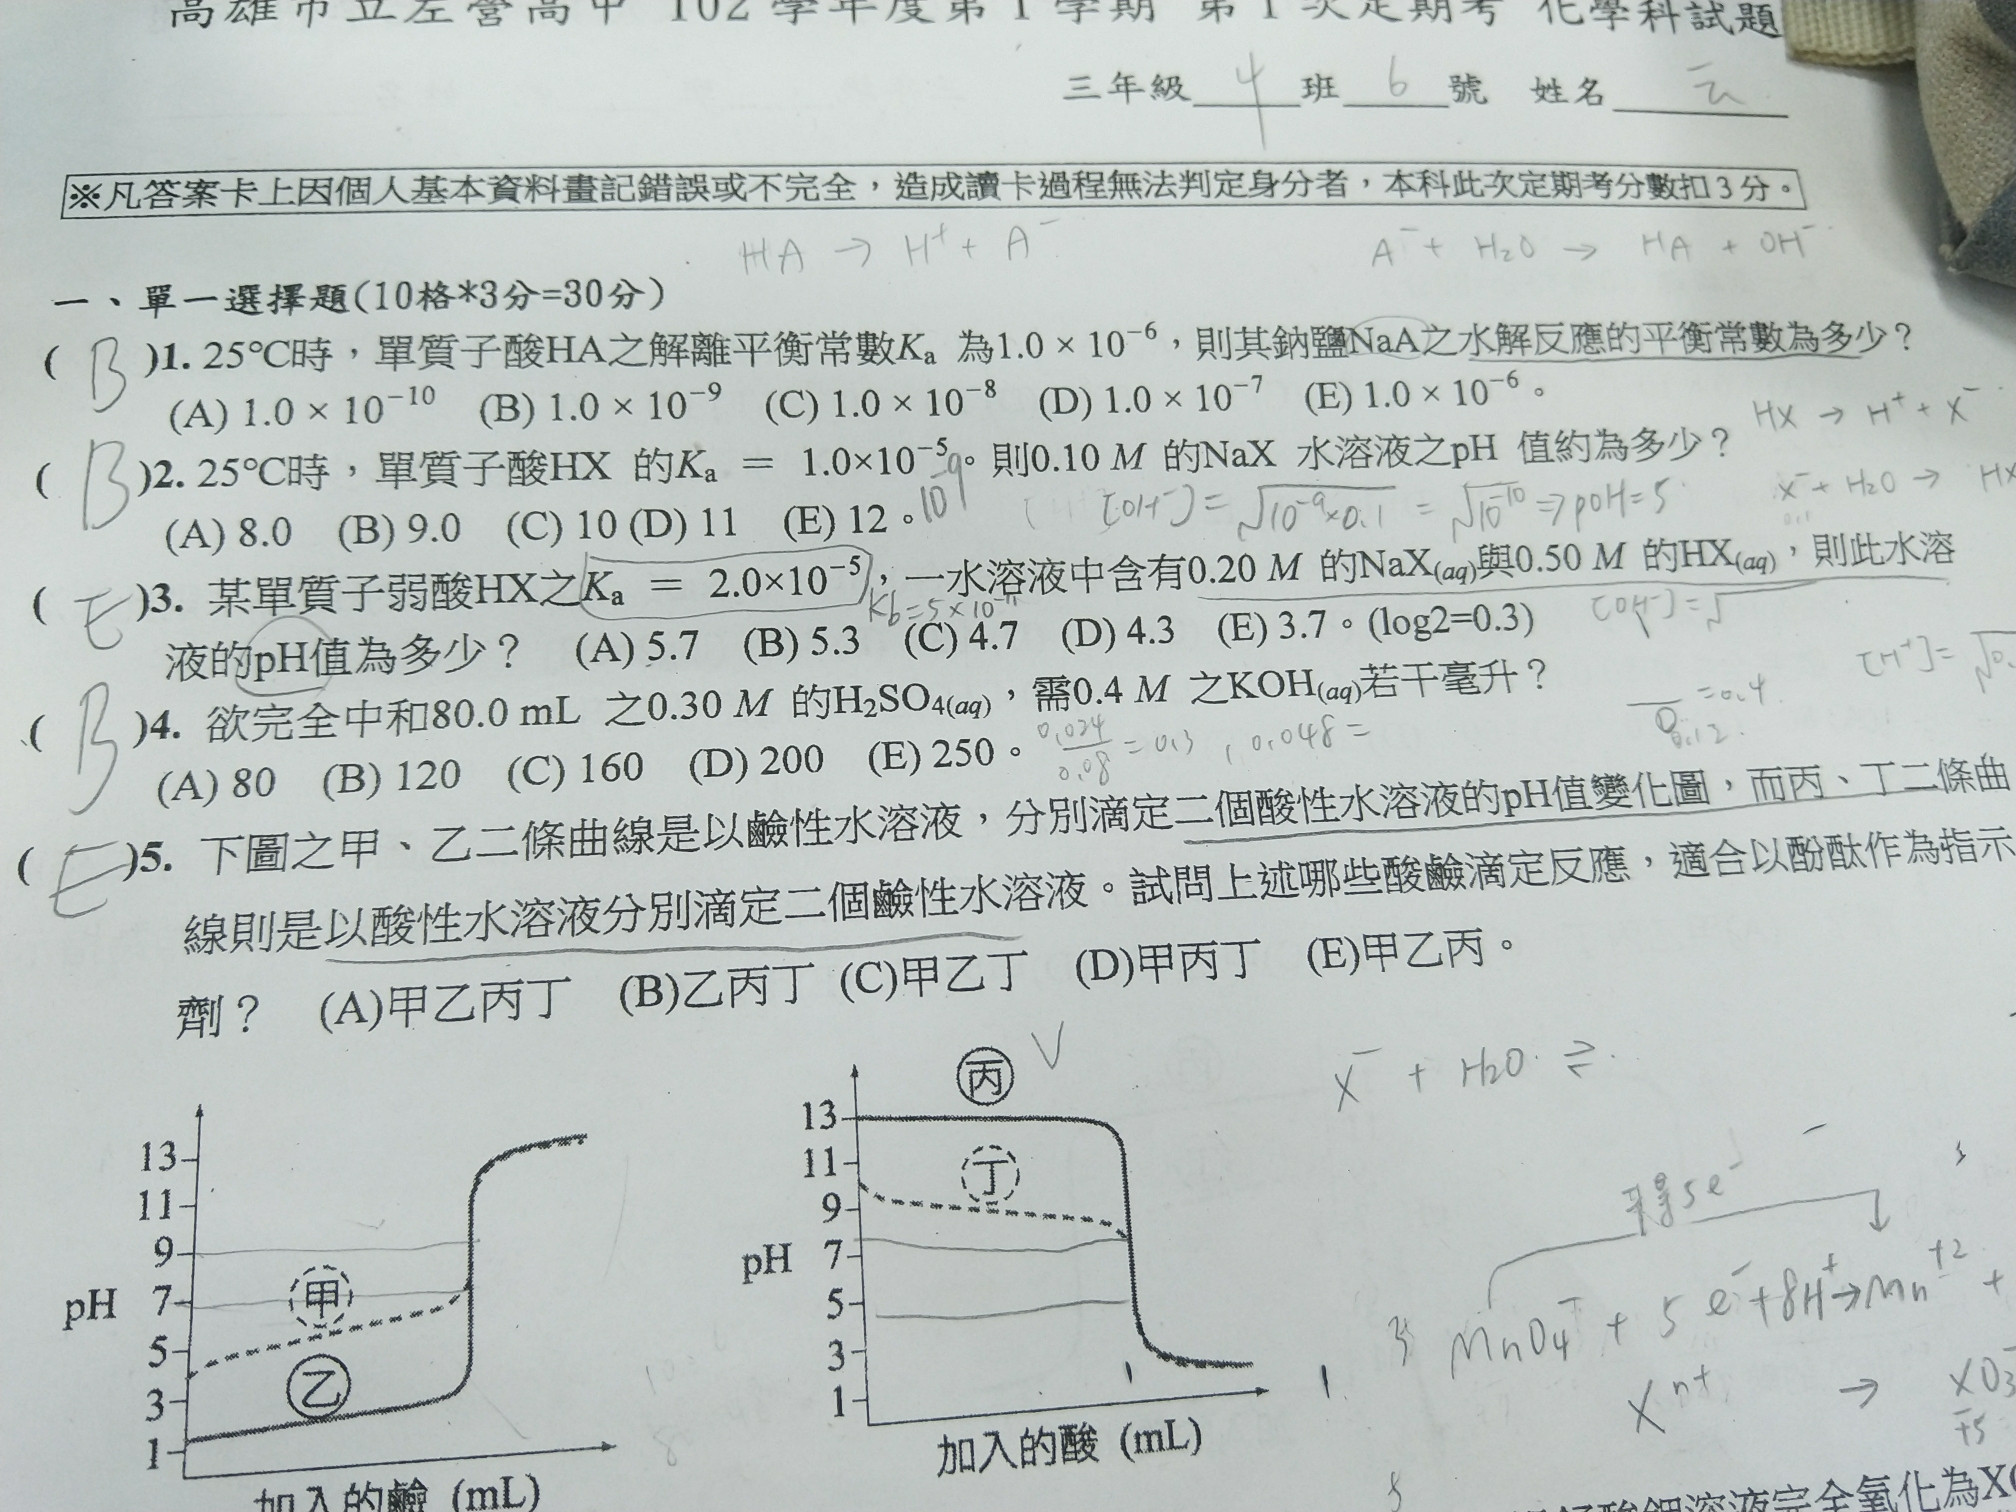 高雄市立左營高中 102 學年度第 1 學期 第 1 次定期考 化學科試題
三年級 4 班 6 號 姓名
※凡答案卡上因個人基本資料畫記錯誤或不完全，造成讀卡過程無法判定身分者，本科此次定期考分數扣3分。
HA → H⁺ + A⁻ A⁻ + H₂O → HA + OH⁻
一、單一選擇題(10格*3分=30分)
( B )1. 25°C時，單質子酸HA之解離平衡常數Kₐ 為1.0 × 10⁻⁶，則其鈉鹽NaA之水解反應的平衡常數為多少？
(A) 1.0 × 10⁻¹⁰ (B) 1.0 × 10⁻⁹ (C) 1.0 × 10⁻⁸ (D) 1.0 × 10⁻⁷ (E) 1.0 × 10⁻⁶。
HX → H⁺ + X⁻
( B )2. 25°C時，單質子酸HX 的Kₐ = 1.0×10⁻⁵。則0.10 M 的NaX 水溶液之pH 值約為多少？
X⁻ + H₂O → HX
(A) 8.0 (B) 9.0 (C) 10 (D) 11 (E) 12。 10⁻⁹ [OH⁻] = √10⁻⁹×0.1 = √10⁻¹⁰ ⇒ pOH = 5
( E )3. 某單質子弱酸HX之Kₐ = 2.0×10⁻⁵，一水溶液中含有0.20 M 的NaX(aq)與0.50 M 的HX(aq)，則此水溶
Kb = 5 × 10 [OH⁻] = √
液的pH值為多少？ (A) 5.7 (B) 5.3 (C) 4.7 (D) 4.3 (E) 3.7。(log2=0.3)
[H⁺] = √0.
( B )4. 欲完全中和80.0 mL 之0.30 M 的H₂SO₄(aq)，需0.4 M 之KOH(aq)若干毫升？
(A) 80 (B) 120 (C) 160 (D) 200 (E) 250。 0.024/0.08 = 0.3 , 0.048 = = 0.4 0.12
( E )5. 下圖之甲、乙二條曲線是以鹼性水溶液，分別滴定二個酸性水溶液的pH值變化圖，而丙、丁二條曲
線則是以酸性水溶液分別滴定二個鹼性水溶液。試問上述哪些酸鹼滴定反應，適合以酚酞作為指示
劑？ (A)甲乙丙丁 (B)乙丙丁 (C)甲乙丁 (D)甲丙丁 (E)甲乙丙。
X⁻ + H₂O ⇌
13
11
9
7
5
3
1
pH
甲
乙
加入的鹼 (mL)
丙
丁
13
11
9
7
5
3
1
pH
加入的酸 (mL)
得5e⁻
MnO₄⁻ + 5e⁻ + 8H⁺ → Mn⁺² +
Xⁿ⁺ → XO₃⁻
+5
溶液完全氧化為XO